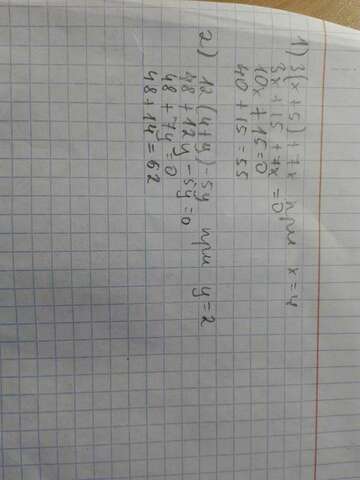 1) 3(x+5)+7x при x=4
3x+15+7x=0
10x+15=0
40+15=55
2) 12(4+y)-5y при y=2
48+12y-5y=0
48+7y=0
48+14=62